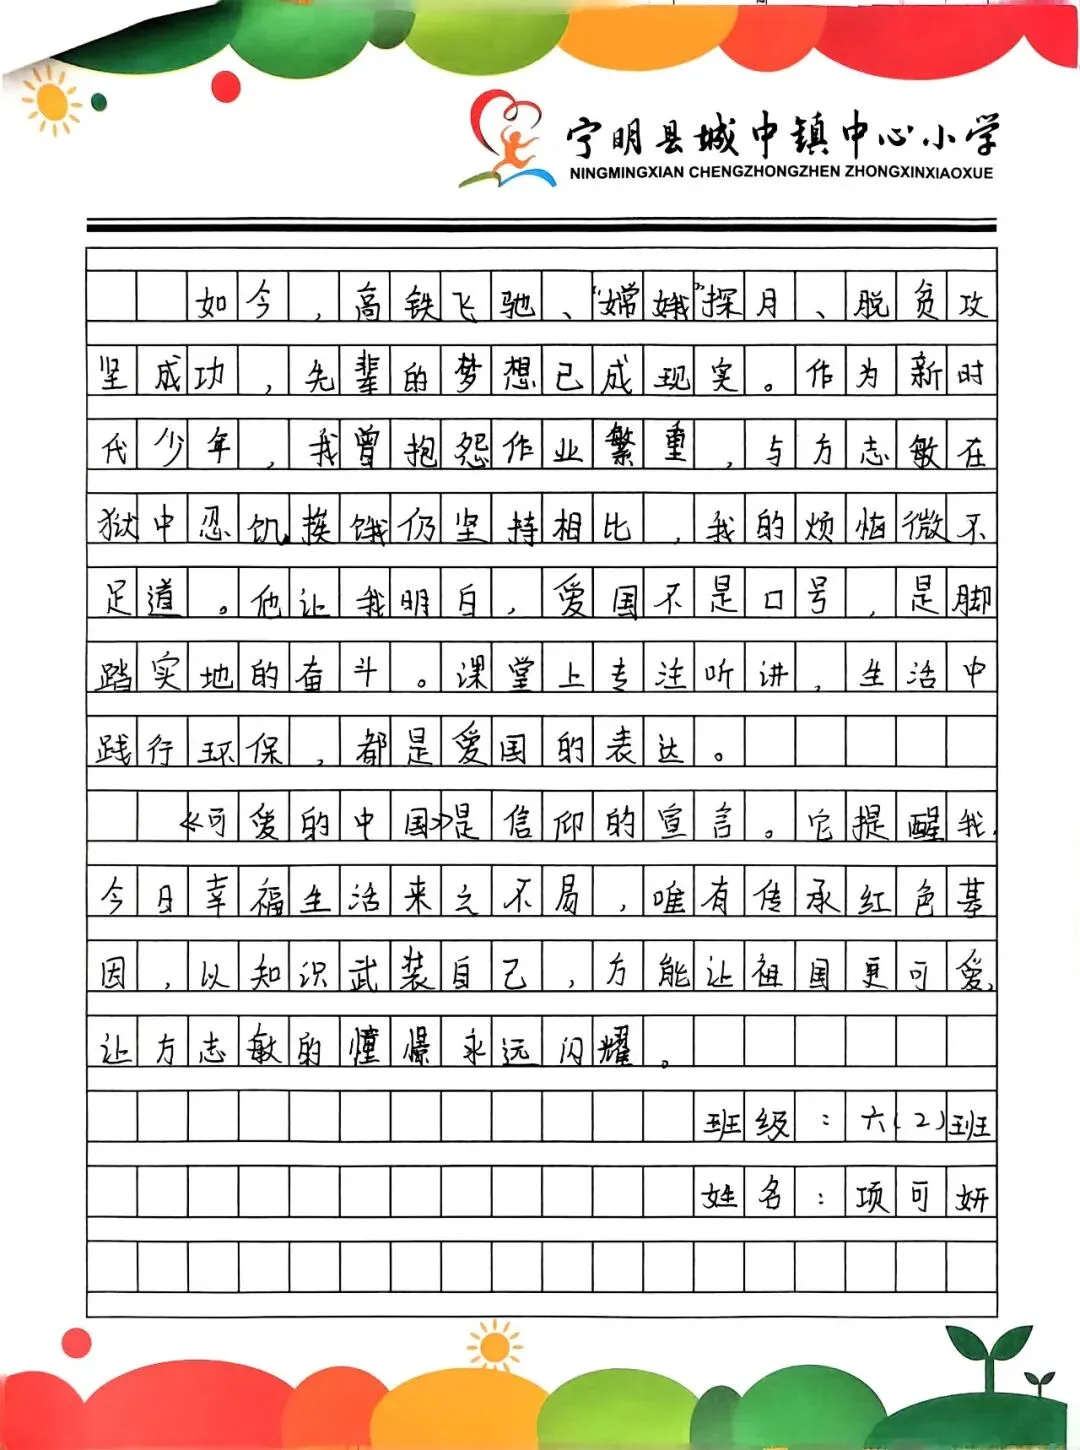 宁明县城中镇中心小学
NINGMINGXIAN CHENGZHONGZHEN ZHONGXINXIAOXUE
如今，高铁飞驰、“嫦娥”探月、脱贫攻
坚成功，先辈的梦想已成现实。作为新时
代少年，我曾抱怨作业繁重，与方志敏在
狱中忍饥挨饿仍坚持相比，我的烦恼微不
足道。他让我明白，爱国不是口号，是脚
踏实地的奋斗。课堂上专注听讲，生活中
践行环保，都是爱国的表达。
《可爱的中国》是信仰的宣言。它提醒我，
今日幸福生活来之不易，唯有传承红色基
因，以知识武装自己，方能让祖国更可爱，
让方志敏的憧憬永远闪耀。
班级：六（2）班
姓名：项可妍